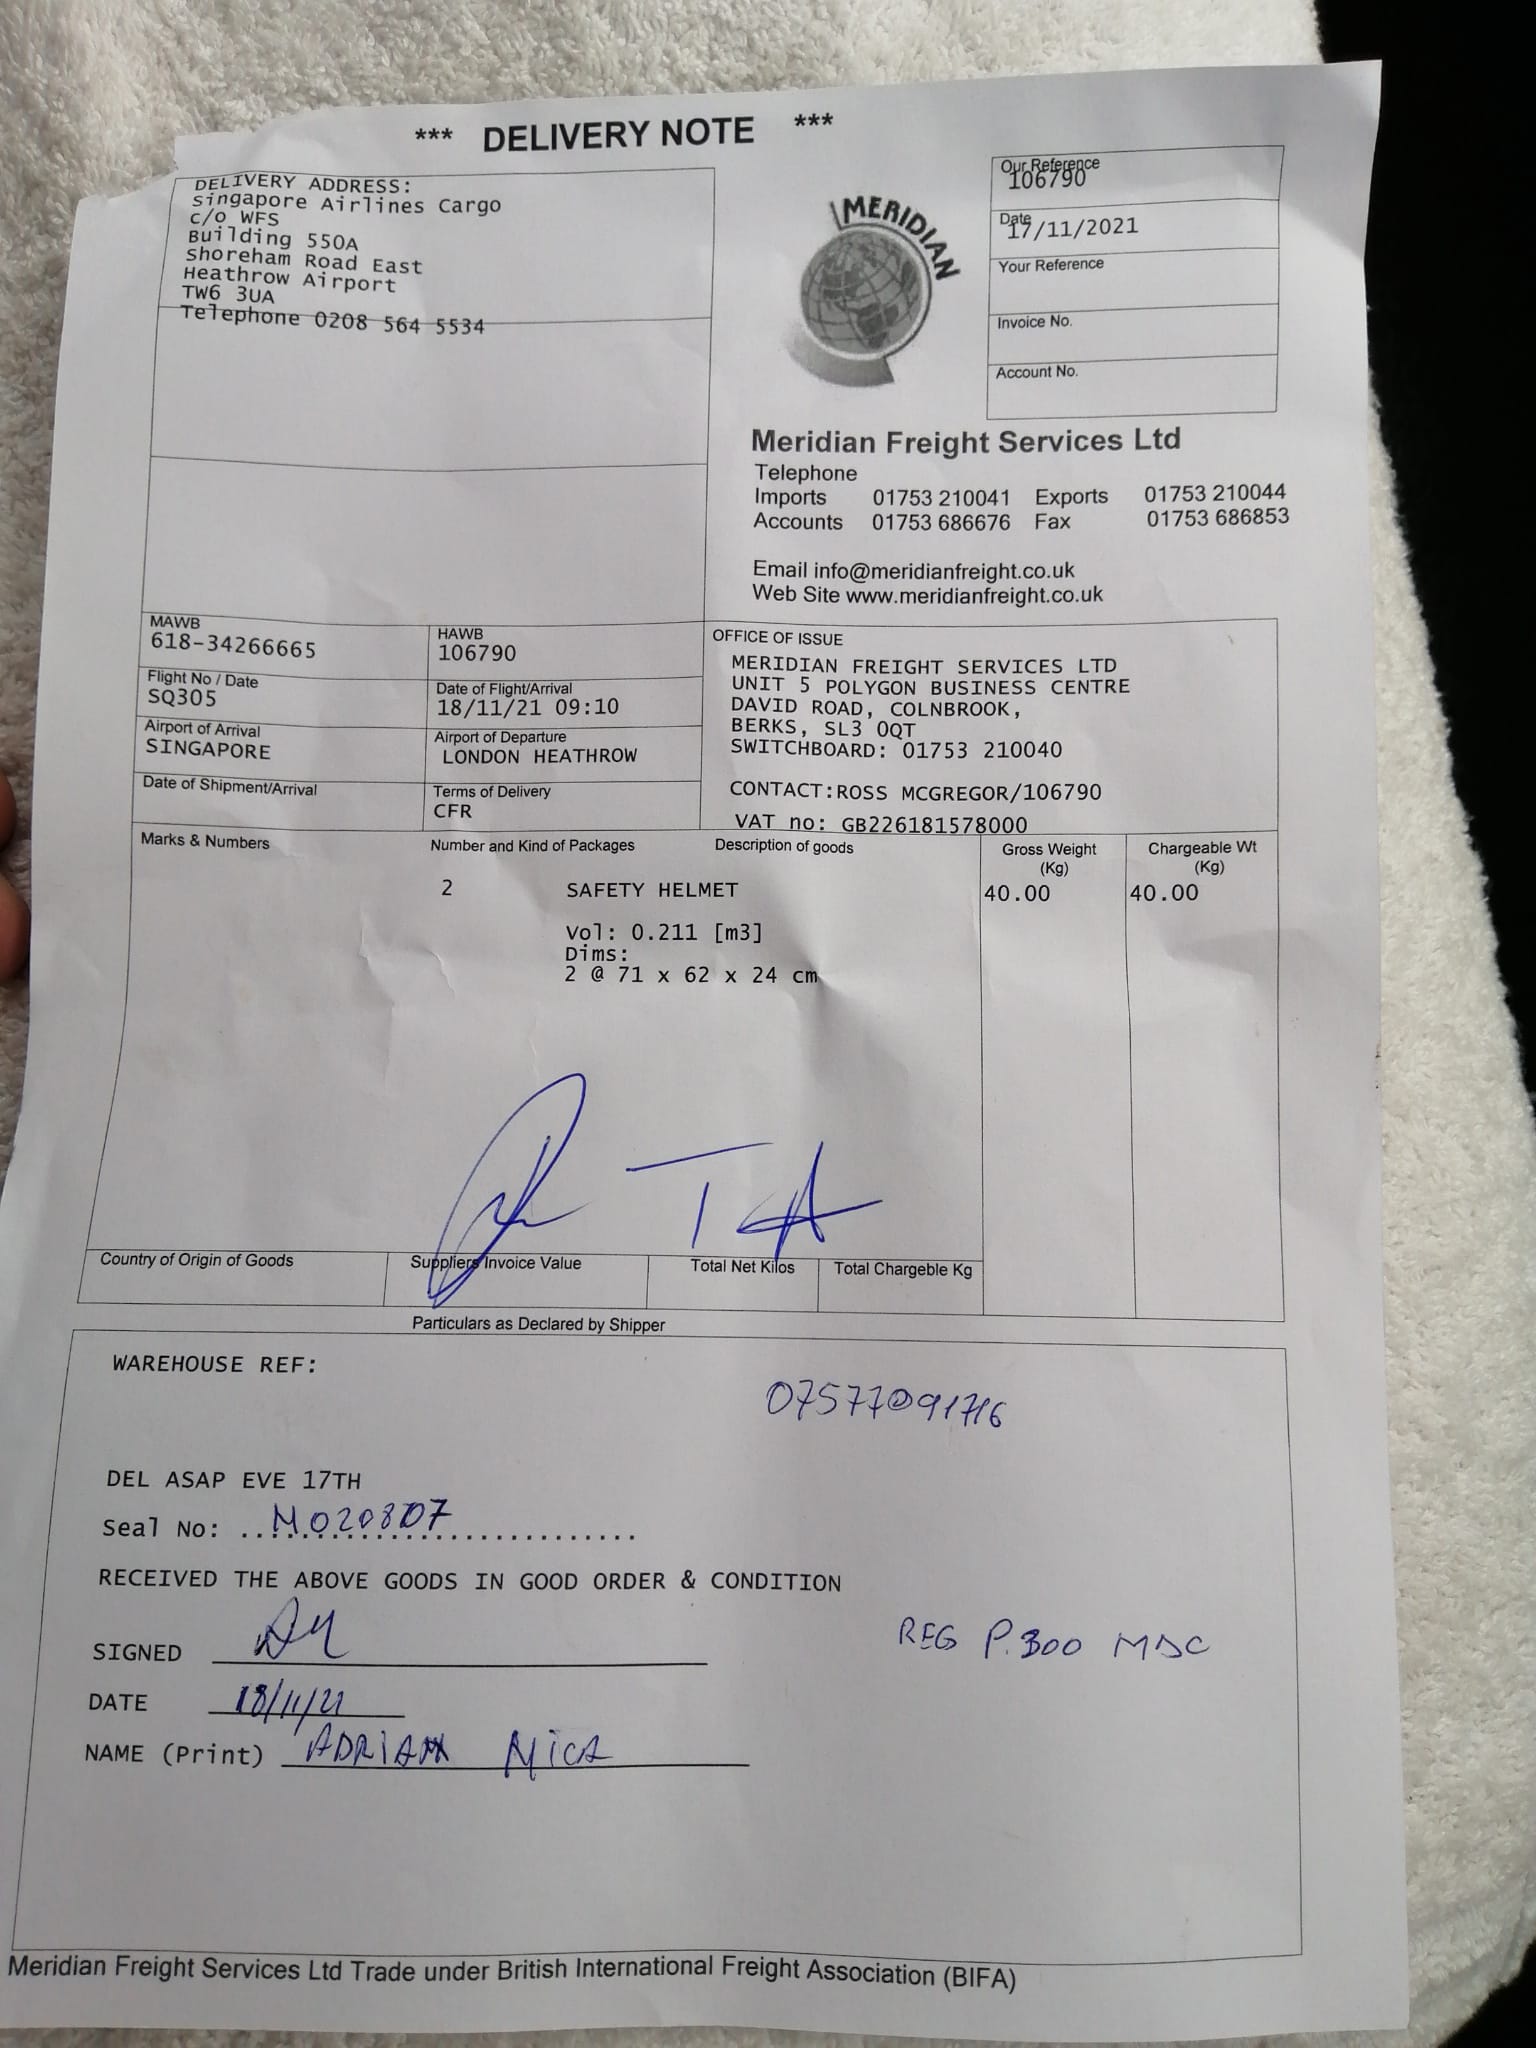 *** DELIVERY NOTE ***
DELIVERY ADDRESS:
Singapore Airlines Cargo
c/o WFS
Building 550A
Shoreham Road East
Heathrow Airport
TW6 3UA
Telephone 0208 564 5534
MERIDIAN
Our Reference
106790
Date
17/11/2021
Your Reference
Invoice No.
Account No.
Meridian Freight Services Ltd
Telephone
Imports 01753 210041 Exports 01753 210044
Accounts 01753 686676 Fax 01753 686853
Email info@meridianfreight.co.uk
Web Site www.meridianfreight.co.uk
MAWB
618-34266665
HAWB
106790
Flight No / Date
SQ305
Date of Flight/Arrival
18/11/21 09:10
Airport of Arrival
SINGAPORE
Airport of Departure
LONDON HEATHROW
Date of Shipment/Arrival
Terms of Delivery
CFR
OFFICE OF ISSUE
MERIDIAN FREIGHT SERVICES LTD
UNIT 5 POLYGON BUSINESS CENTRE
DAVID ROAD, COLNBROOK,
BERKS, SL3 0QT
SWITCHBOARD: 01753 210040
CONTACT:ROSS MCGREGOR/106790
VAT no: GB226181578000
Marks & Numbers Number and Kind of Packages Description of goods Gross Weight (Kg) Chargeable Wt (Kg)
2 SAFETY HELMET 40.00 40.00
Vol: 0.211 [m3]
Dims:
2 @ 71 x 62 x 24 cm
Country of Origin of Goods Suppliers Invoice Value Total Net Kilos Total Chargeable Kg
Particulars as Declared by Shipper
WAREHOUSE REF:
DEL ASAP EVE 17TH
Seal No: M020807
RECEIVED THE ABOVE GOODS IN GOOD ORDER & CONDITION
SIGNED
REG P.300 MDC
DATE 18/11/21
NAME (Print) ADRIAN MICA
Meridian Freight Services Ltd Trade under British International Freight Association (BIFA)